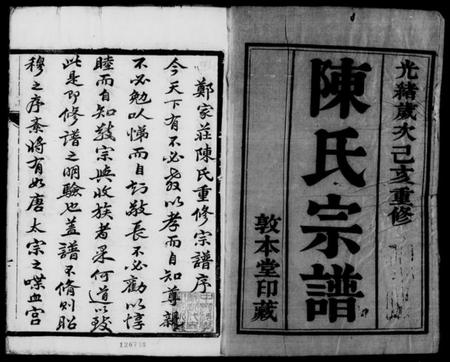 光緒歲次己亥重修
陳氏宗譜
敦本堂印藏
鄭家莊陳氏重修宗譜序
今天下有不必教以孝而自知尊親
不必勉以悌而自切敬長不必勸以惇
睦而自知敬宗與收族者果何道以致
此是即修譜之明驗也蓋譜不脩則昭
穆之序紊將有如唐太宗之喋血宮